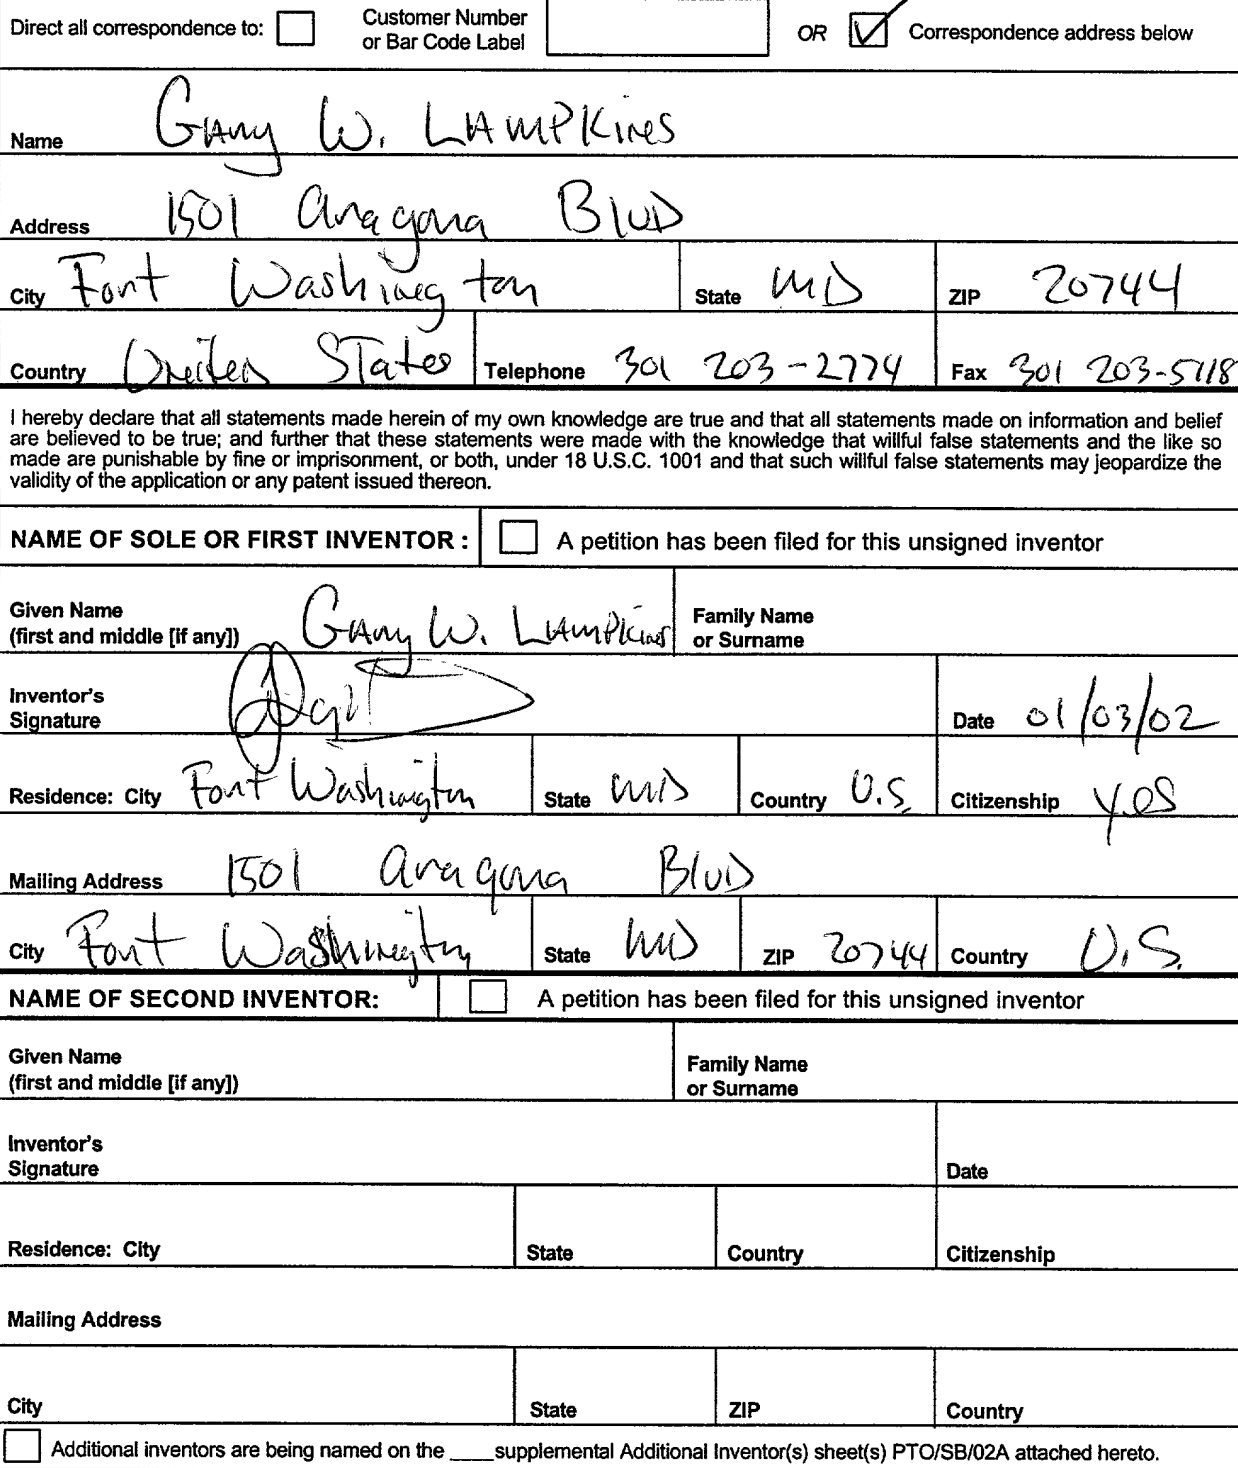 Direct all correspondence to: Customer Number or Bar Code Label OR Correspondence address below
Name Gary W. Lampkins
Address 1501 Aragona Blvd
City Fort Washington State MD ZIP 20744
Country United States Telephone 301 203-2774 Fax 301 203-5118
I hereby declare that all statements made herein of my own knowledge are true and that all statements made on information and belief
are believed to be true; and further that these statements were made with the knowledge that willful false statements and the like so
made are punishable by fine or imprisonment, or both, under 18 U.S.C. 1001 and that such willful false statements may jeopardize the
validity of the application or any patent issued thereon.
NAME OF SOLE OR FIRST INVENTOR : A petition has been filed for this unsigned inventor
Given Name (first and middle [if any]) Gary W. Lampkins Family Name or Surname
Inventor's Signature Date 01/03/02
Residence: City Fort Washington State MD Country U.S. Citizenship yes
Mailing Address 1501 Aragona Blvd
City Fort Washington State MD ZIP 20744 Country U.S.
NAME OF SECOND INVENTOR: A petition has been filed for this unsigned inventor
Given Name (first and middle [if any]) Family Name or Surname
Inventor's Signature Date
Residence: City State Country Citizenship
Mailing Address
City State ZIP Country
Additional inventors are being named on the ____supplemental Additional Inventor(s) sheet(s) PTO/SB/02A attached hereto.